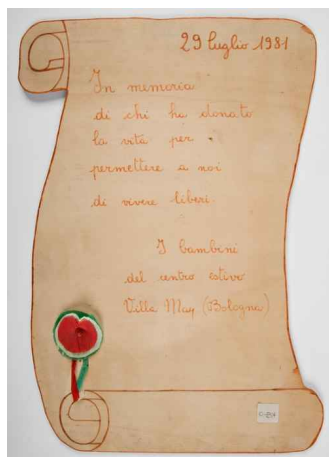 29 luglio 1981
In memoria
di chi ha donato
la vita per
permettere a noi
di vivere liberi
I bambini
del centro estivo
Villa May (Bologna)